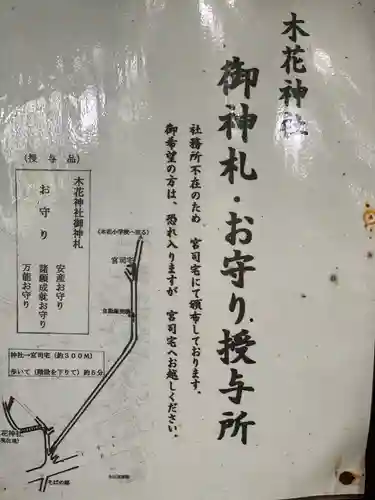 木花神社
御神札・お守り授与所
社務所不在のため、宮司宅にて頒布しております。
御希望の方は、恐れ入りますが　宮司宅へお越しください。
(授　与　品)
木花神社御神札
お守り
安産お守り
諸願成就お守り
万能お守り
(木花小学校へ至る)
宮司宅
自動販売機
神社→宮司宅（約３００Ｍ）
歩いて（階段を下りて）約５分
花神社
(現在地)